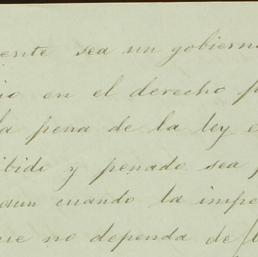 ente sea un gobierno
io en el derecho p
la pena de la ley e
ibido y penado sea p
aun cuando la impe
ue no dependa de